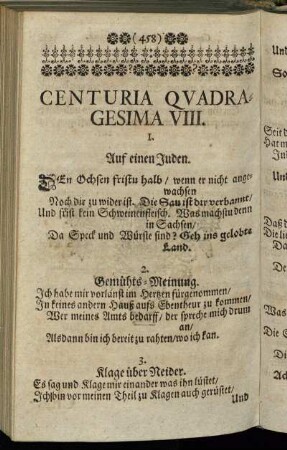 (458)
CENTURIA QVADRA-
GESIMA VIII.
1.
Auf einen Juden.
DEn Ochsen fristu halb/ wenn er nicht ange-
wachsen
Noch dir zu wider ist. Die Sau ist dir verbannt/
Und füst kein Schweinenfleisch. Was machstu denn
in Sachsen/
Da Speck und Würste sind? Geh ins gelobte
Land.
2.
Gemühts-Meinung.
Ich habe mir vorlänst im Hertzen fürgenommen/
In keines andern Hauß aufs Ebentheur zu kommen/
Wer meines Amts bedarff/ der spreche mich drum
an/
Alsdann bin ich bereit zu rahten/ wo ich kan.
3.
Klage über Neider.
Es sag und Klage mir einander was ihn lüstet/
Ich bin vor meinen Theil zu Klagen auch gerüstet/
Und